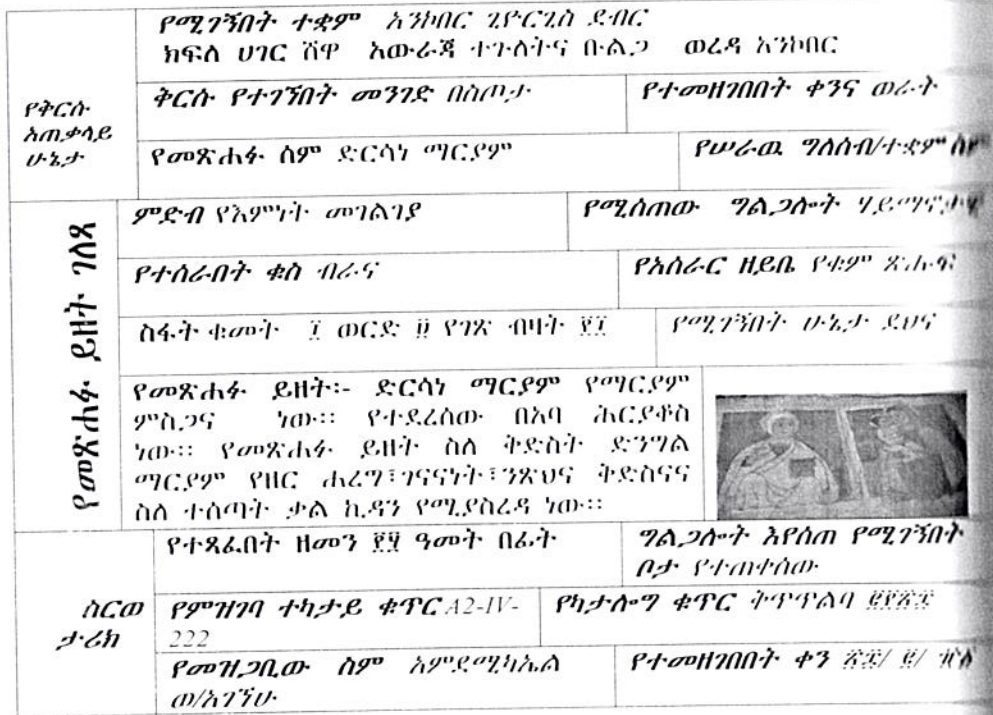 የሚገኝበት ተቋም አንኮበር ጊዮርጊስ ደብር
ክፍለ ሀገር ሸዋ አውራጃ ተጉለትና ቡልጋ ወረዳ አንኮበር
የቅርሱ
አጠቃላይ
ሁኔታ
ቅርሱ የተገኘበት መንገድ በስጦታ
የተመዘገበበት ቀንና ወራት
የመጽሐፉ ስም ድርሳነ ማርያም
የሠራዉ ግለሰብ/ተቋም ስም
የመጽሐፉ ይዘት ገለጻ
ምድብ የእምነት መገልገያ
የሚሰጠው ግልጋሎት
የተሰራበት ቁስ ብራና
የአሰራር ዘይቤ የቁም ጽሑፍ
ስፋት ቁመት ፲ ወርድ ፱ የገጽ ብዛት
የሚገኝበት ሁኔታ ደህና
የመጽሐፉ ይዘት፡- ድርሳነ ማርያም የማርያም
ምስጋና ነው፡፡ የተደረሰው በአባ ሕርያቆስ
ነው፡፡ የመጽሐፉ ይዘት ስለ ቅድስት ድንግል
ማርያም የዘር ሐረግ፣ገናናነት፣ንጽህና ቅድስናና
ስለ ተሰጣት ቃል ኪዳን የሚያስረዳ ነው፡፡
ስርወ
ታሪክ
የተጻፈበት ዘመን ዓመት በፊት
ግልጋሎት እየሰጠ የሚገኝበት
ቦታ የተጠቀሰው
የምዝገባ ተካታይ ቁጥር A2-IV-
222
የካታሎግ ቁጥር ቅጥጥልባ
የመዝጋቢው ስም አምደሚካኤል
ወ/አገኘሁ
የተመዘገበበት ቀን